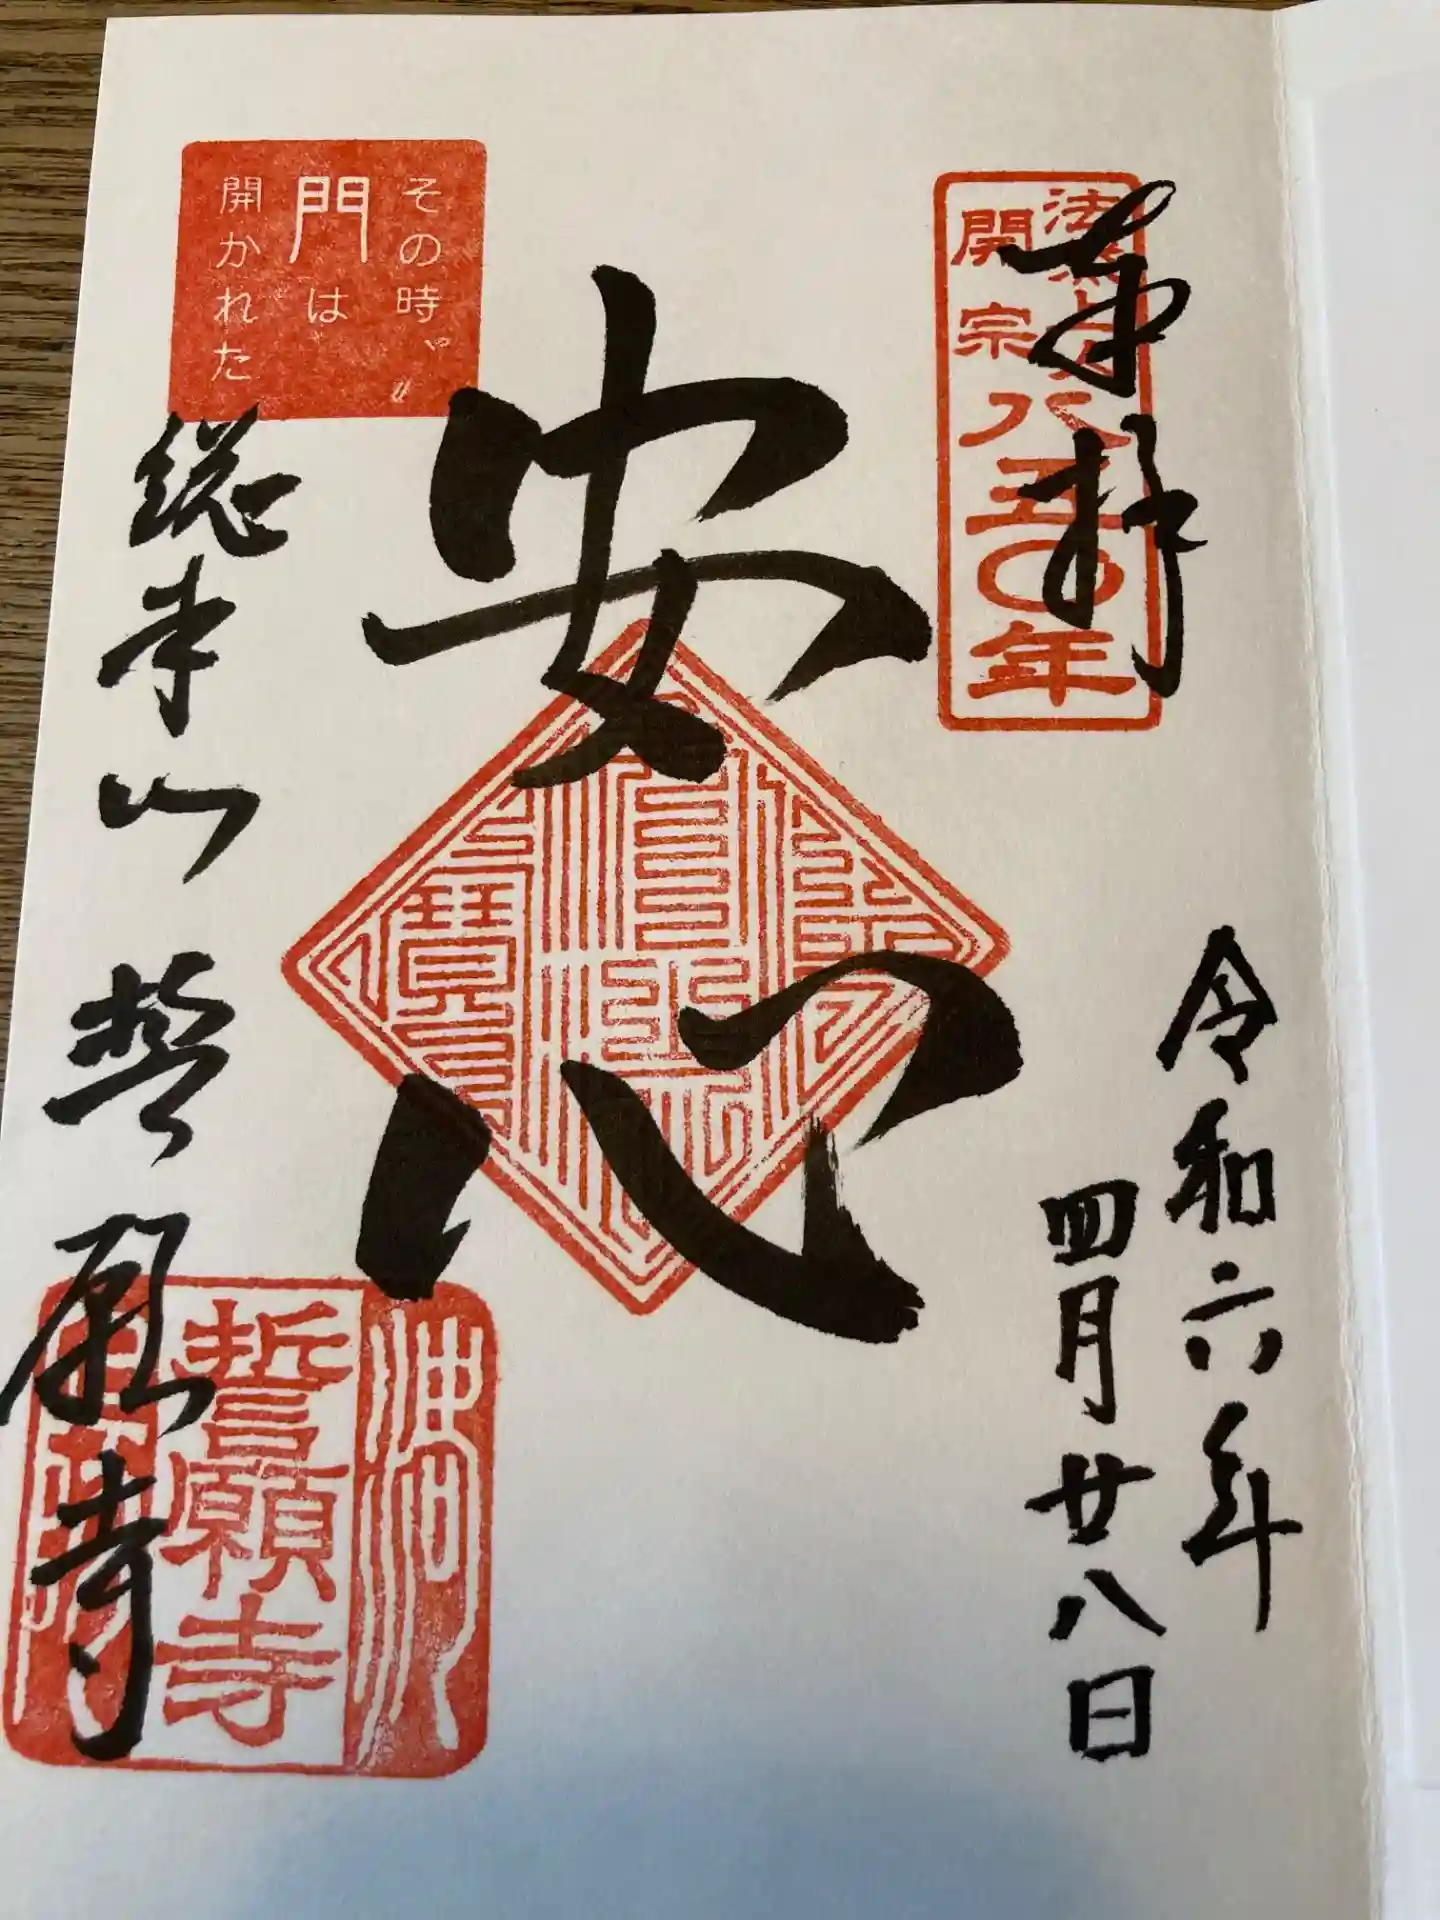 奉拝
法然上人
開宗八五〇年
令和六年
四月廿八日
安心
その時、〃
門は〃
開かれた
総本山 誓願寺
誓願寺